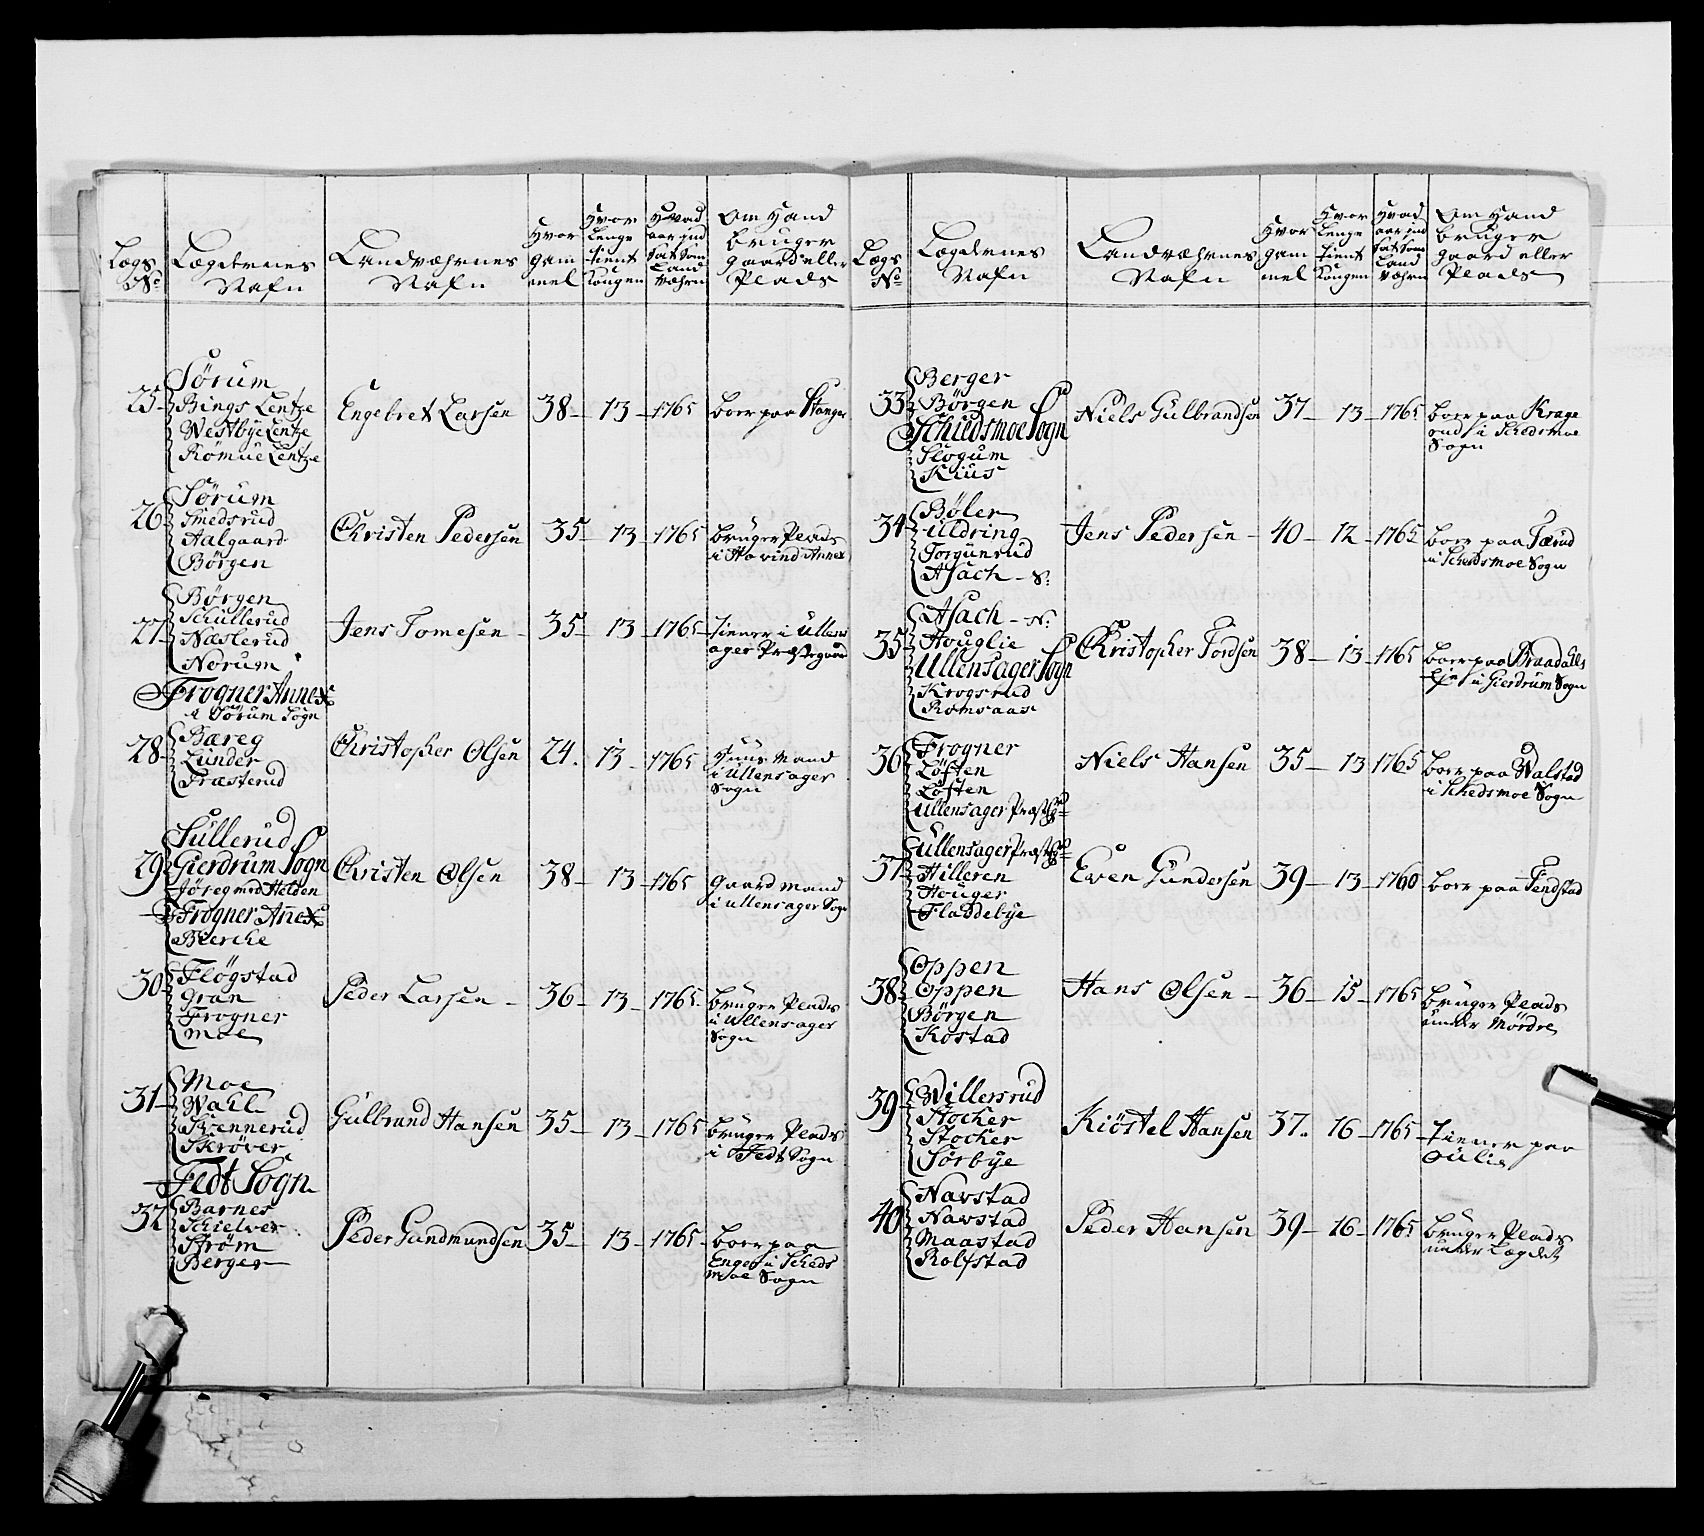 Lægs No
Lægdernes Nafn
Landværnes Nafn
Hvor gam mel
Hvor Lenge tient Kongen
Hvad aar ind sat som Land værn
Om Hand bruger gaard eller Plads
25 Sørum
Bings Lentze
Westbye Lentze
Römue Lentze
Engebret Larsen 38 - 13 - 1765 boer paa Stanger
26 Sørum
Smedsrud
Aalgaard
Børgen
Christen Pedersen 35 - 13 - 1765 bruger Plads
i Hovind Annex
27 Børgen
Schullerud
Næslerud
Norum
Jens Tomesen - 35 - 13 - 1765 tiener i Ullens
ager Præstegaard
Frogner Annex
a Sørum Sogn
28 Bæreg
Lunder
Træsterud
Christopher Olsen 24. 13 - 1765
Mand
i Ullensager
Sogn
29 Sullerud
Gierdrum Sogn
Frogner Anex
Bierche
Christen Olsen 38 - 13 - 1765 gaard mand
i Ullensager Sogn
30 Fløgstad
Gran
Frogner
Moe
Peder Larsen - 36 - 13 - 1765 bruger Plads
i Ullensager
Sogn
31 Moe
Wahl
Skrøver
Gulbrand Hansen 35 - 13 - 1765 bruger Plads
i Fedt Sogn
Fedt Sogn
32 Barnes
Schielver
Strøm
Berger
Peder Gundmundsen 35 - 13 - 1765 boer paa
Enger i Scheds
moe Sogn
Lægs No
Lægdernes Nafn
Landværnes Nafn
Hvor gam mel
Hvor Lenge tient Kongen
Hvad aar ind sat som Land værn
Om Hand bruger gaard eller Plads
33 Berger
Børgen
Schedsmoe Sogn
Slogum
Kius
Niels Gulbrandsen 37 - 13 - 1765 boer paa Krage
rud i Schedsmoe
Sogn
34 Bøler
illdring
Torgunrud
Asach - S:
Jens Pedersen - 40 - 12 - 1765 boer paa Tærud
i Schedsmoe Sogn
35 Asach - N:
Houglie
Ullensager Sogn
Krogsrud
Romsaas
Christopher Tordsen 38 - 13 - 1765 boer paa Braadalls
Eje i Gierdrum Sogn
36 Frogner
Løften
Løften
Ullensager
Niels Hansen 35 - 13 1765 boer paa Walstad
i Schedsmoe Sogn
37 Ullensager
Hilleren
Houger
Fladdebye
Even Gundersen 39 - 13 - 1760 boer paa Tendstad
38 Oppen
Oppen
Børgen
Kostad
Hans Olsen - 36 - 15 - 1765 bruger Plads
under Mördre
39 Willersrud
Stocher
Stocher
Sørbye
Kiöstel Hansen 37. 16 - 1765 - Tiener paa
Julie
40 Navstad
Navstad
Maastad
Rolfstad
Peder Hansen 39 - 16 - 1765 bruger Plads
under Lægdet